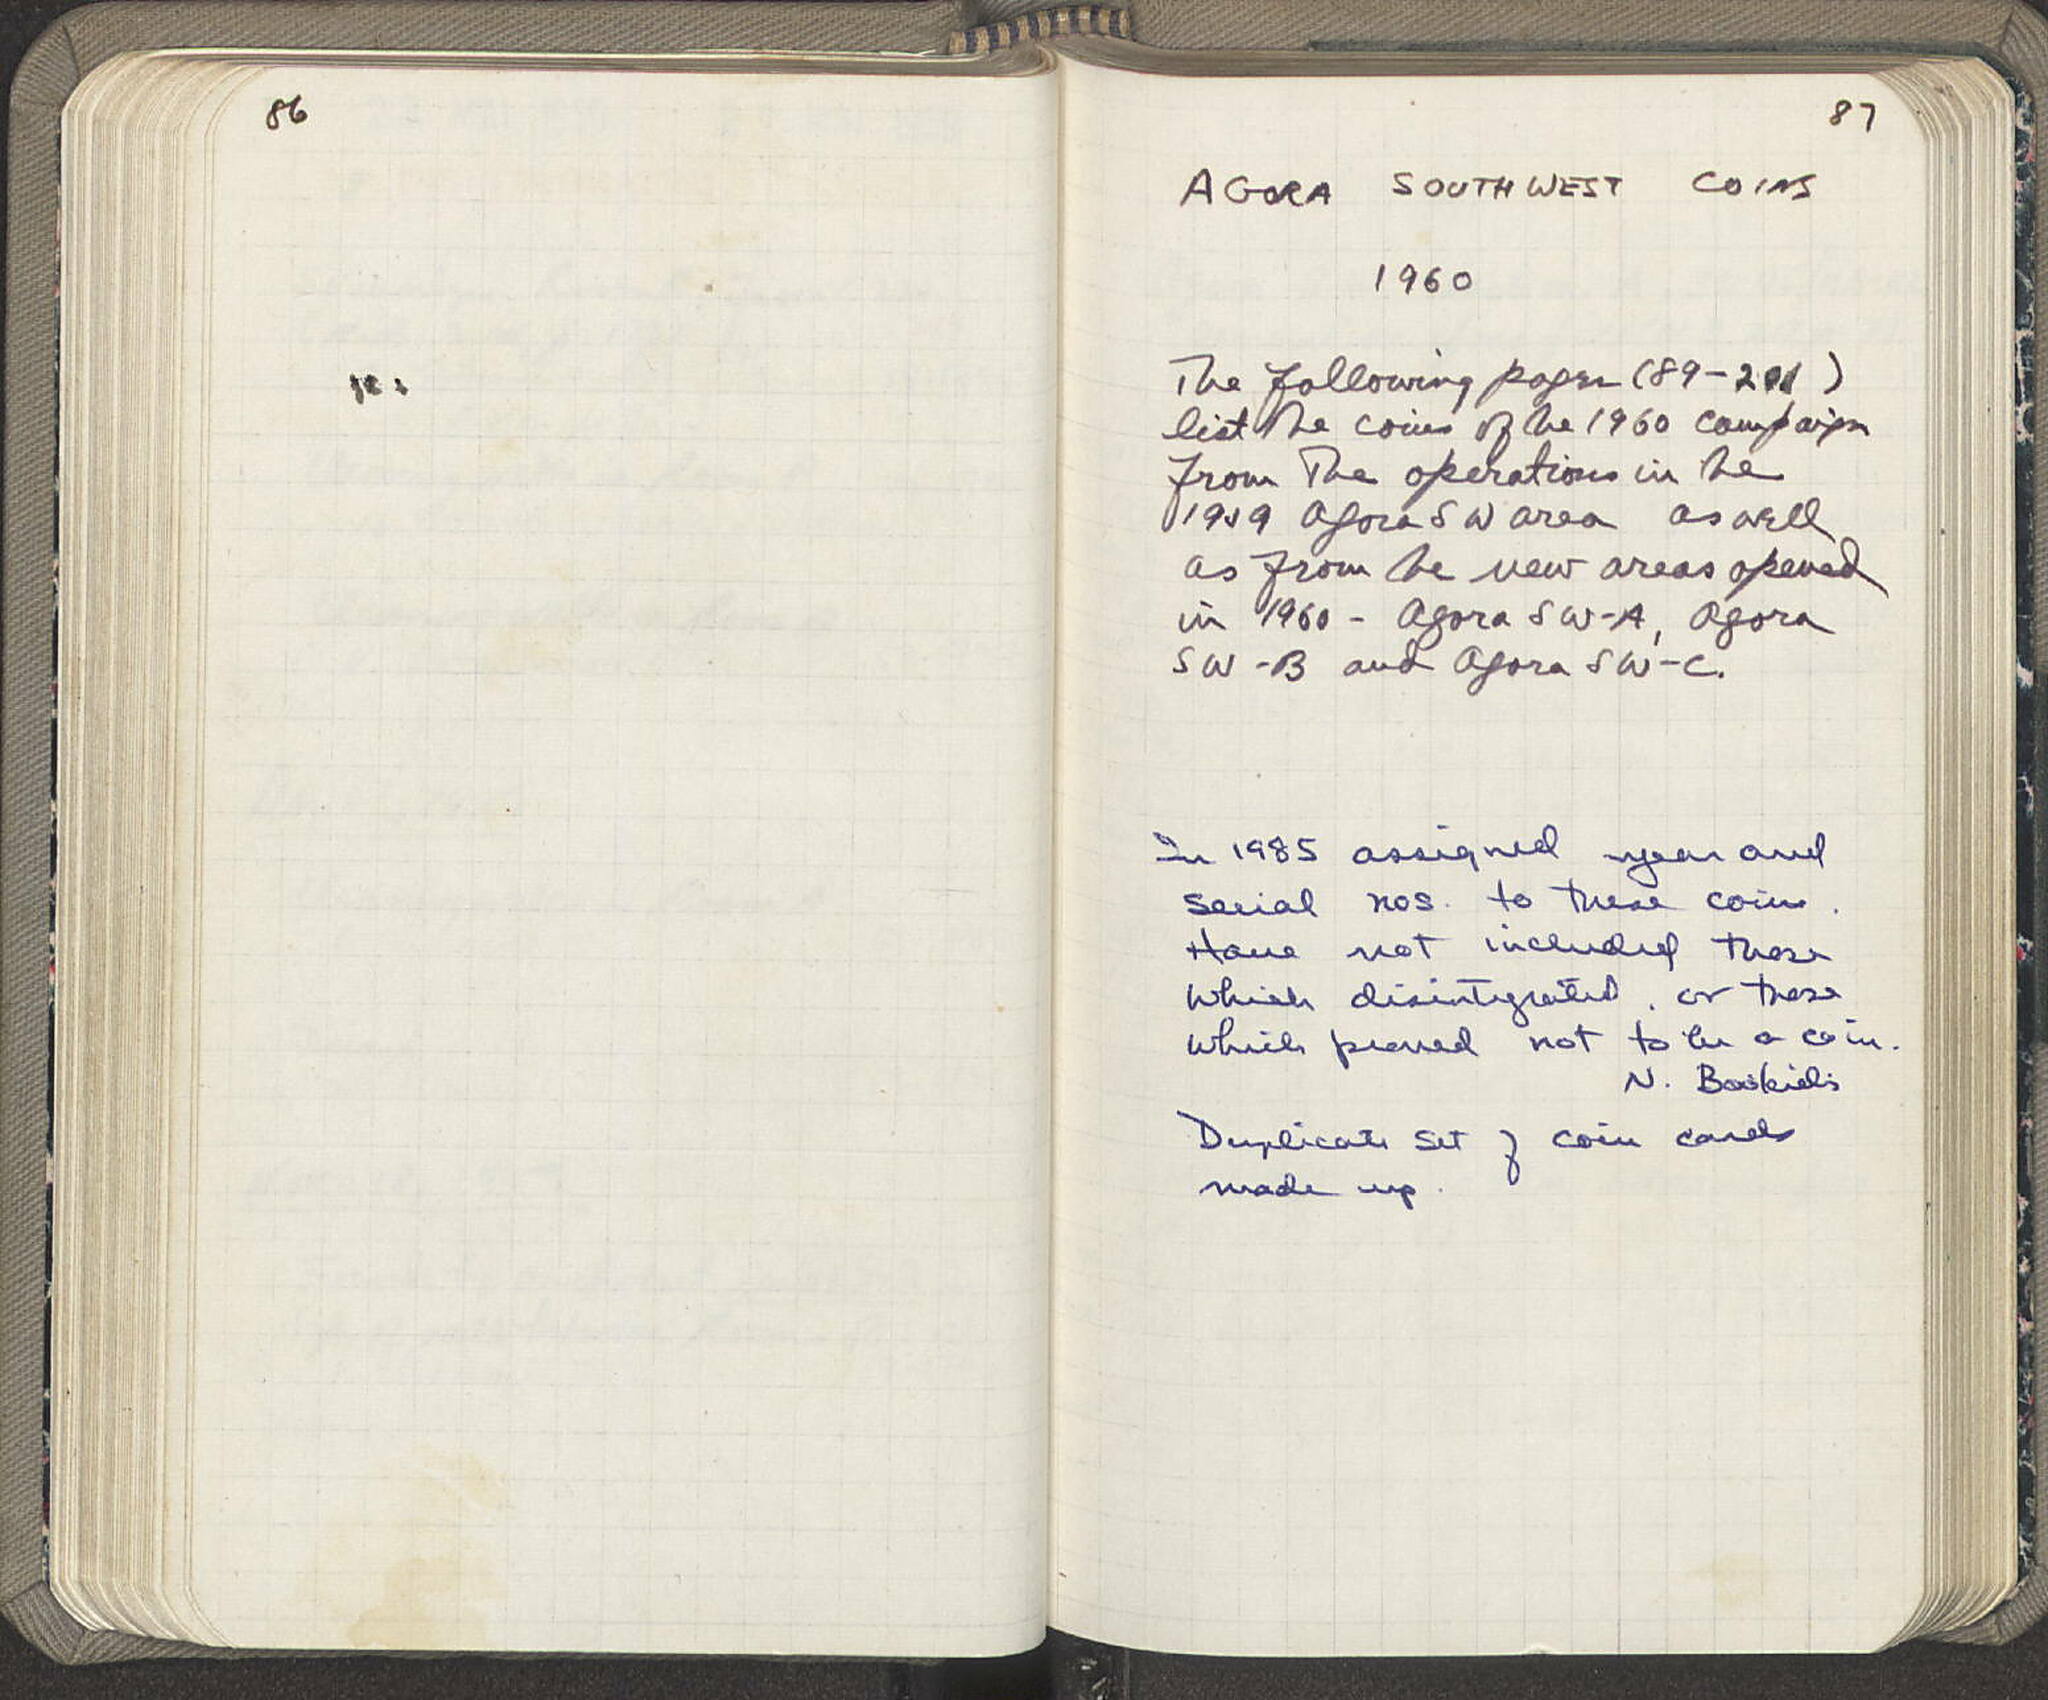 86
87
AGORA SOUTHWEST COINS
1960
The following pages (89-201)
list the coins of the 1960 campaign
from The operations in the
1959 Agora SW area as well
as from the new areas opened
in 1960 - Agora SW-A, Agora
SW-B and Agora SW-C.
In 1985 assigned year and
serial nos. to these coins.
Have not included those
which disintegrated, or those
which proved not to be a coin.
N. Bookidis
Duplicate set of coin cards
made up.